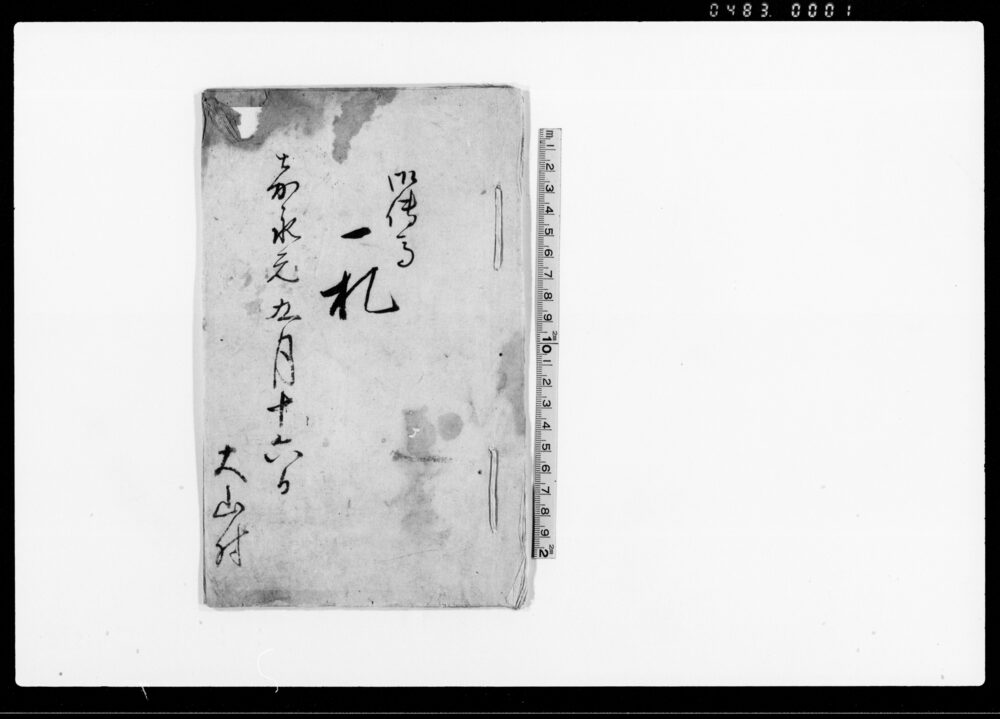 0483. 0001
御傳馬
一札
嘉永元 月十六日
大山村
m 1 2 3 4 5 6 7 8 9 10 1 2 3 4 5 6 7 8 9 2